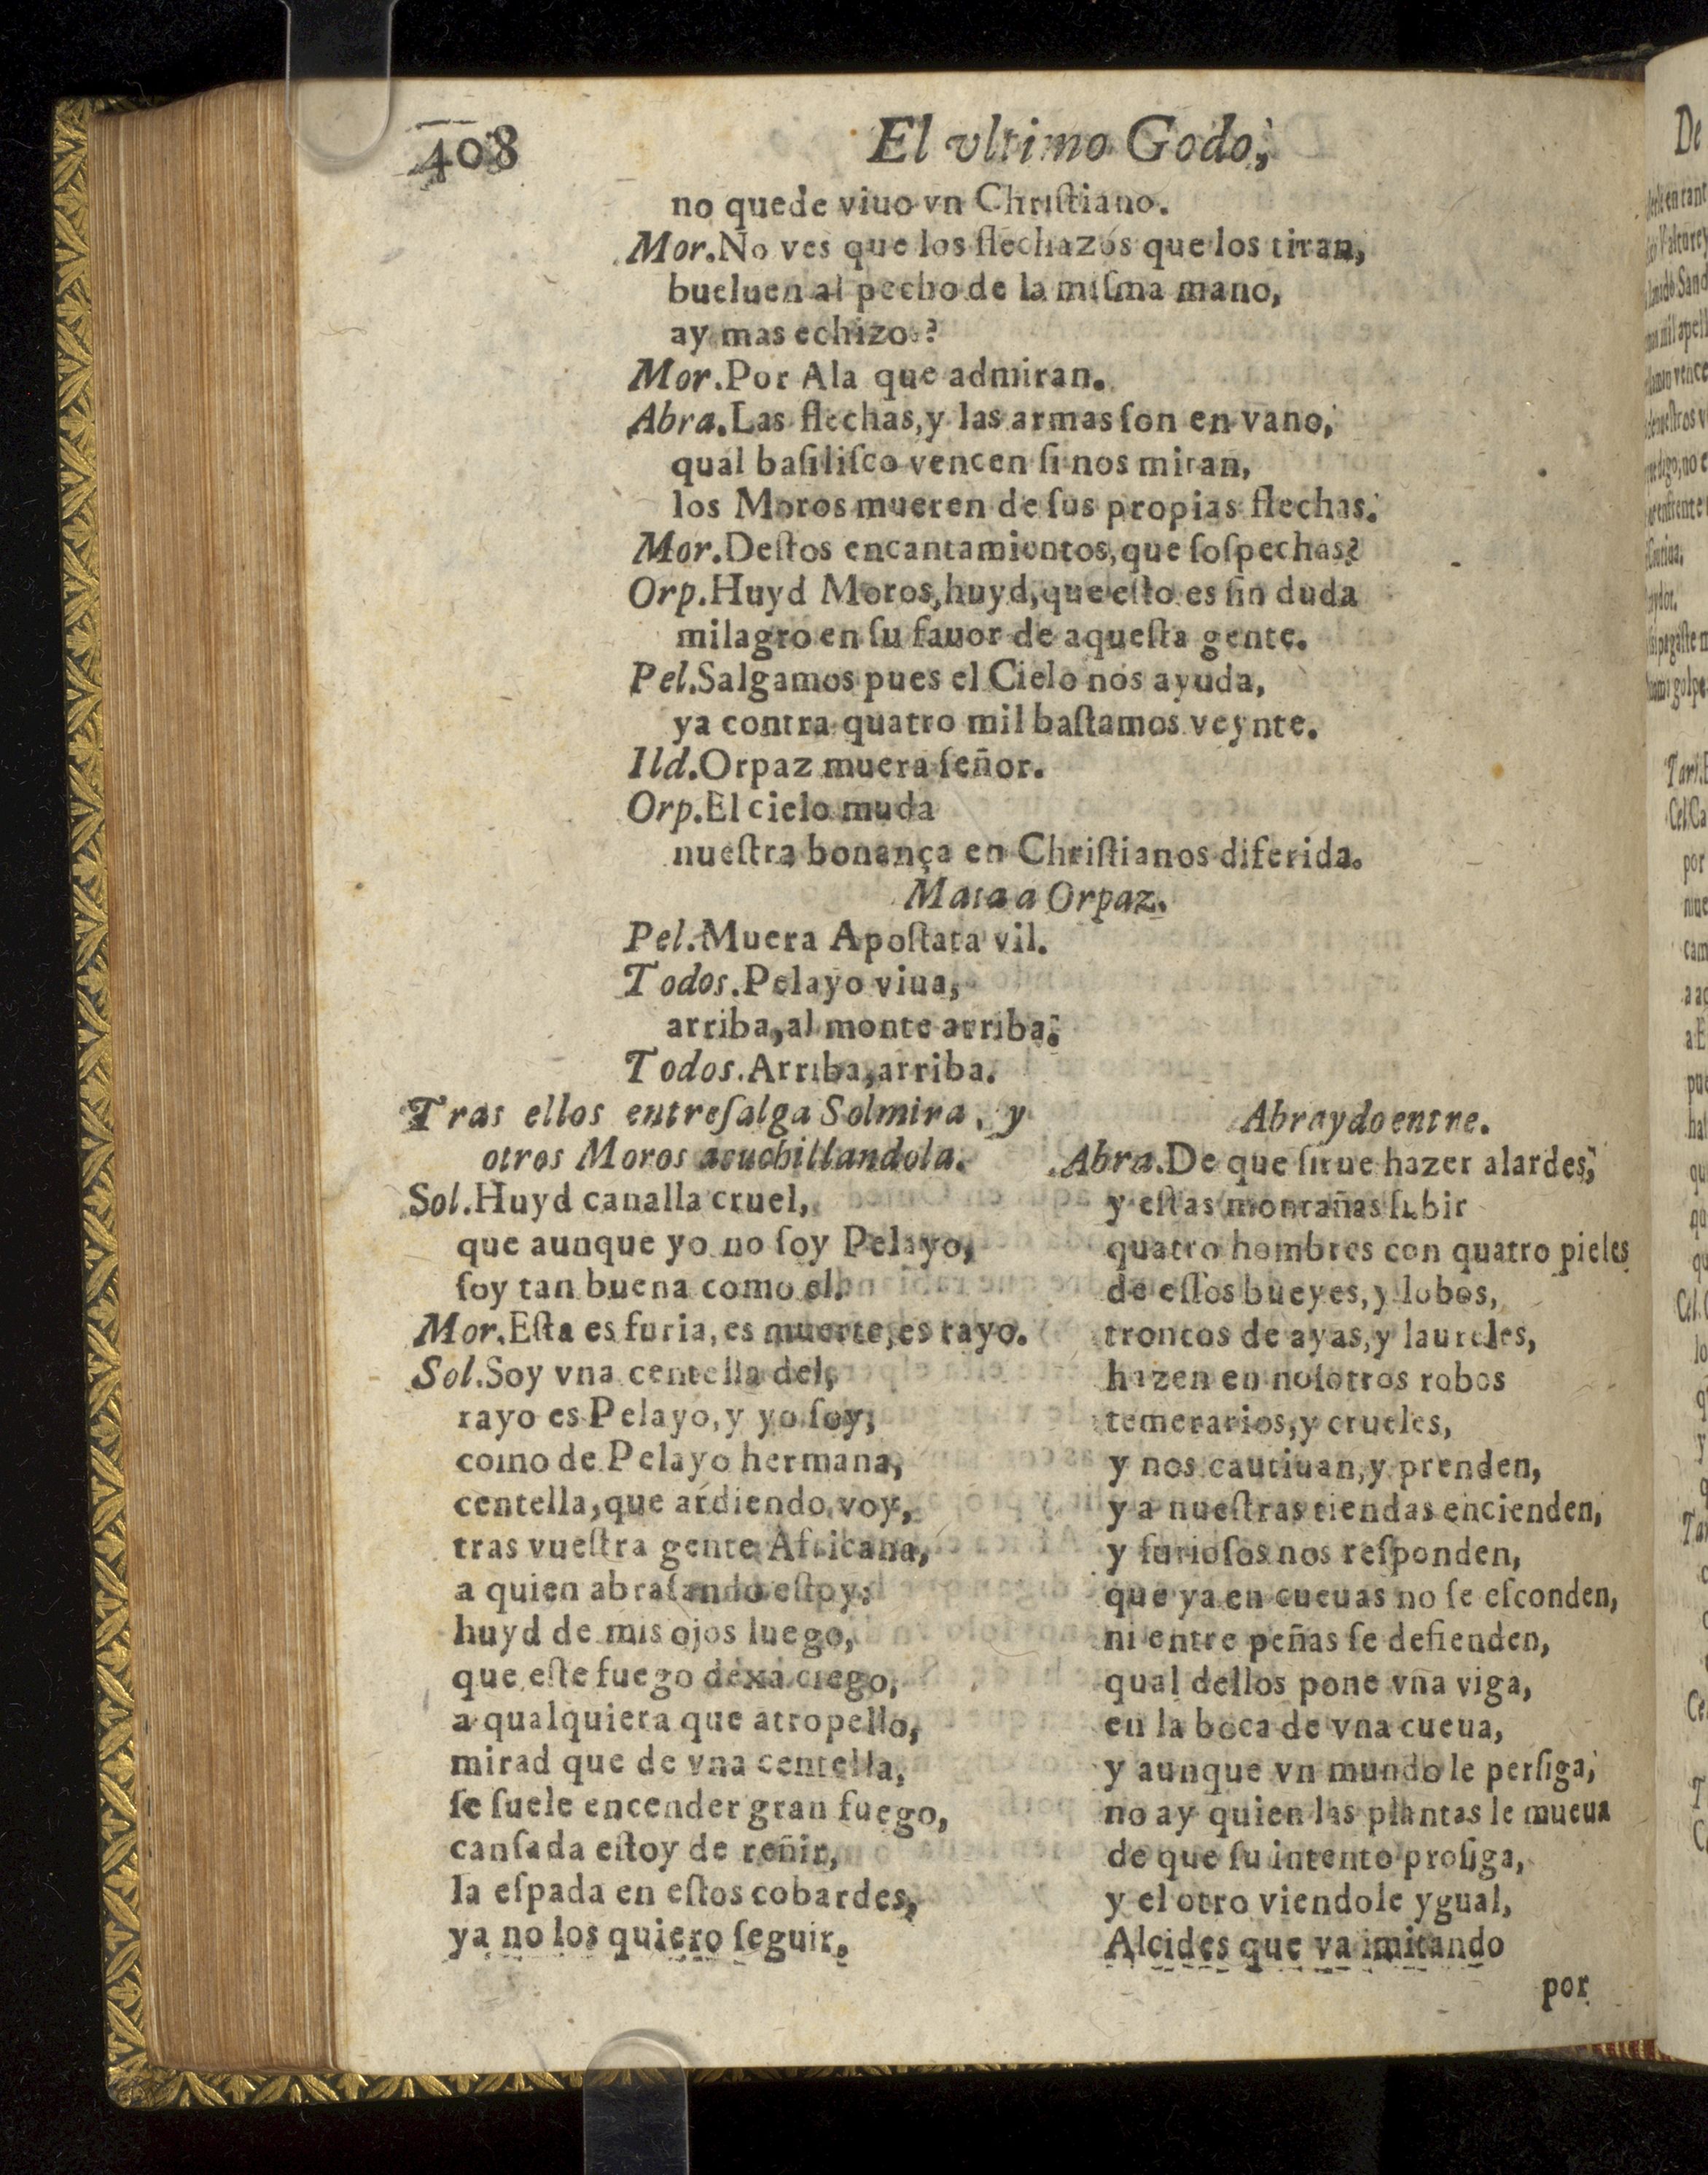 408 El vltimo Godo,
no quede viuo vn Chriſtiano.
Mor.No ves que los flechazos que los tiran,
bueluen al pecho de la miſma mano,
ay mas echizo?
Mor.Por Ala que admiran.
Abra.Las flechas,y las armas ſon en vano,
qual baſiliſco vencen ſi nos miran,
los Moros mueren de ſus propias flechas.
Mor.Deſtos encantamientos,que ſoſpechas?
Orp.Huyd Moros,huyd,que eſto es ſin duda
milagro en ſu fauor de aqueſta gente.
Pel.Salgamos pues el Cielo nos ayuda,
ya contra quatro mil baſtamos veynte.
Ild.Orpaz muera ſeñor.
Orp.El cielo muda
nueſtra bonança en Chriſtianos diferida.
Mata a Orpaz.
Pel.Muera Apoſtata vil.
Todos.Pelayo viua,
arriba,al monte arriba.
Todos.Arriba,arriba.
Tras ellos entreſalga Solmira, y
otros Moros acuchillandola.
Sol.Huyd canalla cruel,
que aunque yo no ſoy Pelayo,
ſoy tan buena como el.
Mor.Eſta es furia, es muerte,es rayo.
Sol.Soy vna centella del,
rayo es Pelayo,y yo ſoy,
como de Pelayo hermana,
centella,que ardiendo voy,
tras vueſtra gente Africana,
a quien abraſando eſtoy:
huyd de mis ojos luego,
que eſte fuego dexa ciego,
a qualquiera que atropello,
mirad que de vna centella,
ſe ſuele encender gran fuego,
canſada eſtoy de reñir,
la eſpada en eſtos cobardes,
ya no los quiero ſeguir.
Abraydo entre.
Abra.De que ſirue hazer alardes,
y eſtas montañas ſubir
quatro hombres con quatro pieles
de eſſos bueyes,y lobos,
troncos de ayas,y laureles,
hazen en noſotros robos
temerarios,y crueles,
y nos cautiuan,y prenden,
y a nueſtras tiendas encienden,
y furioſos nos reſponden,
que ya en cueuas no ſe eſconden,
ni entre peñas ſe defienden,
qual dellos pone vna viga,
en la boca de vna cueua,
y aunque vn mundo le perſiga,
no ay quien las plantas le mueua
de que ſu intento proſiga,
y el otro viendole ygual,
Alcides que va imitando
por